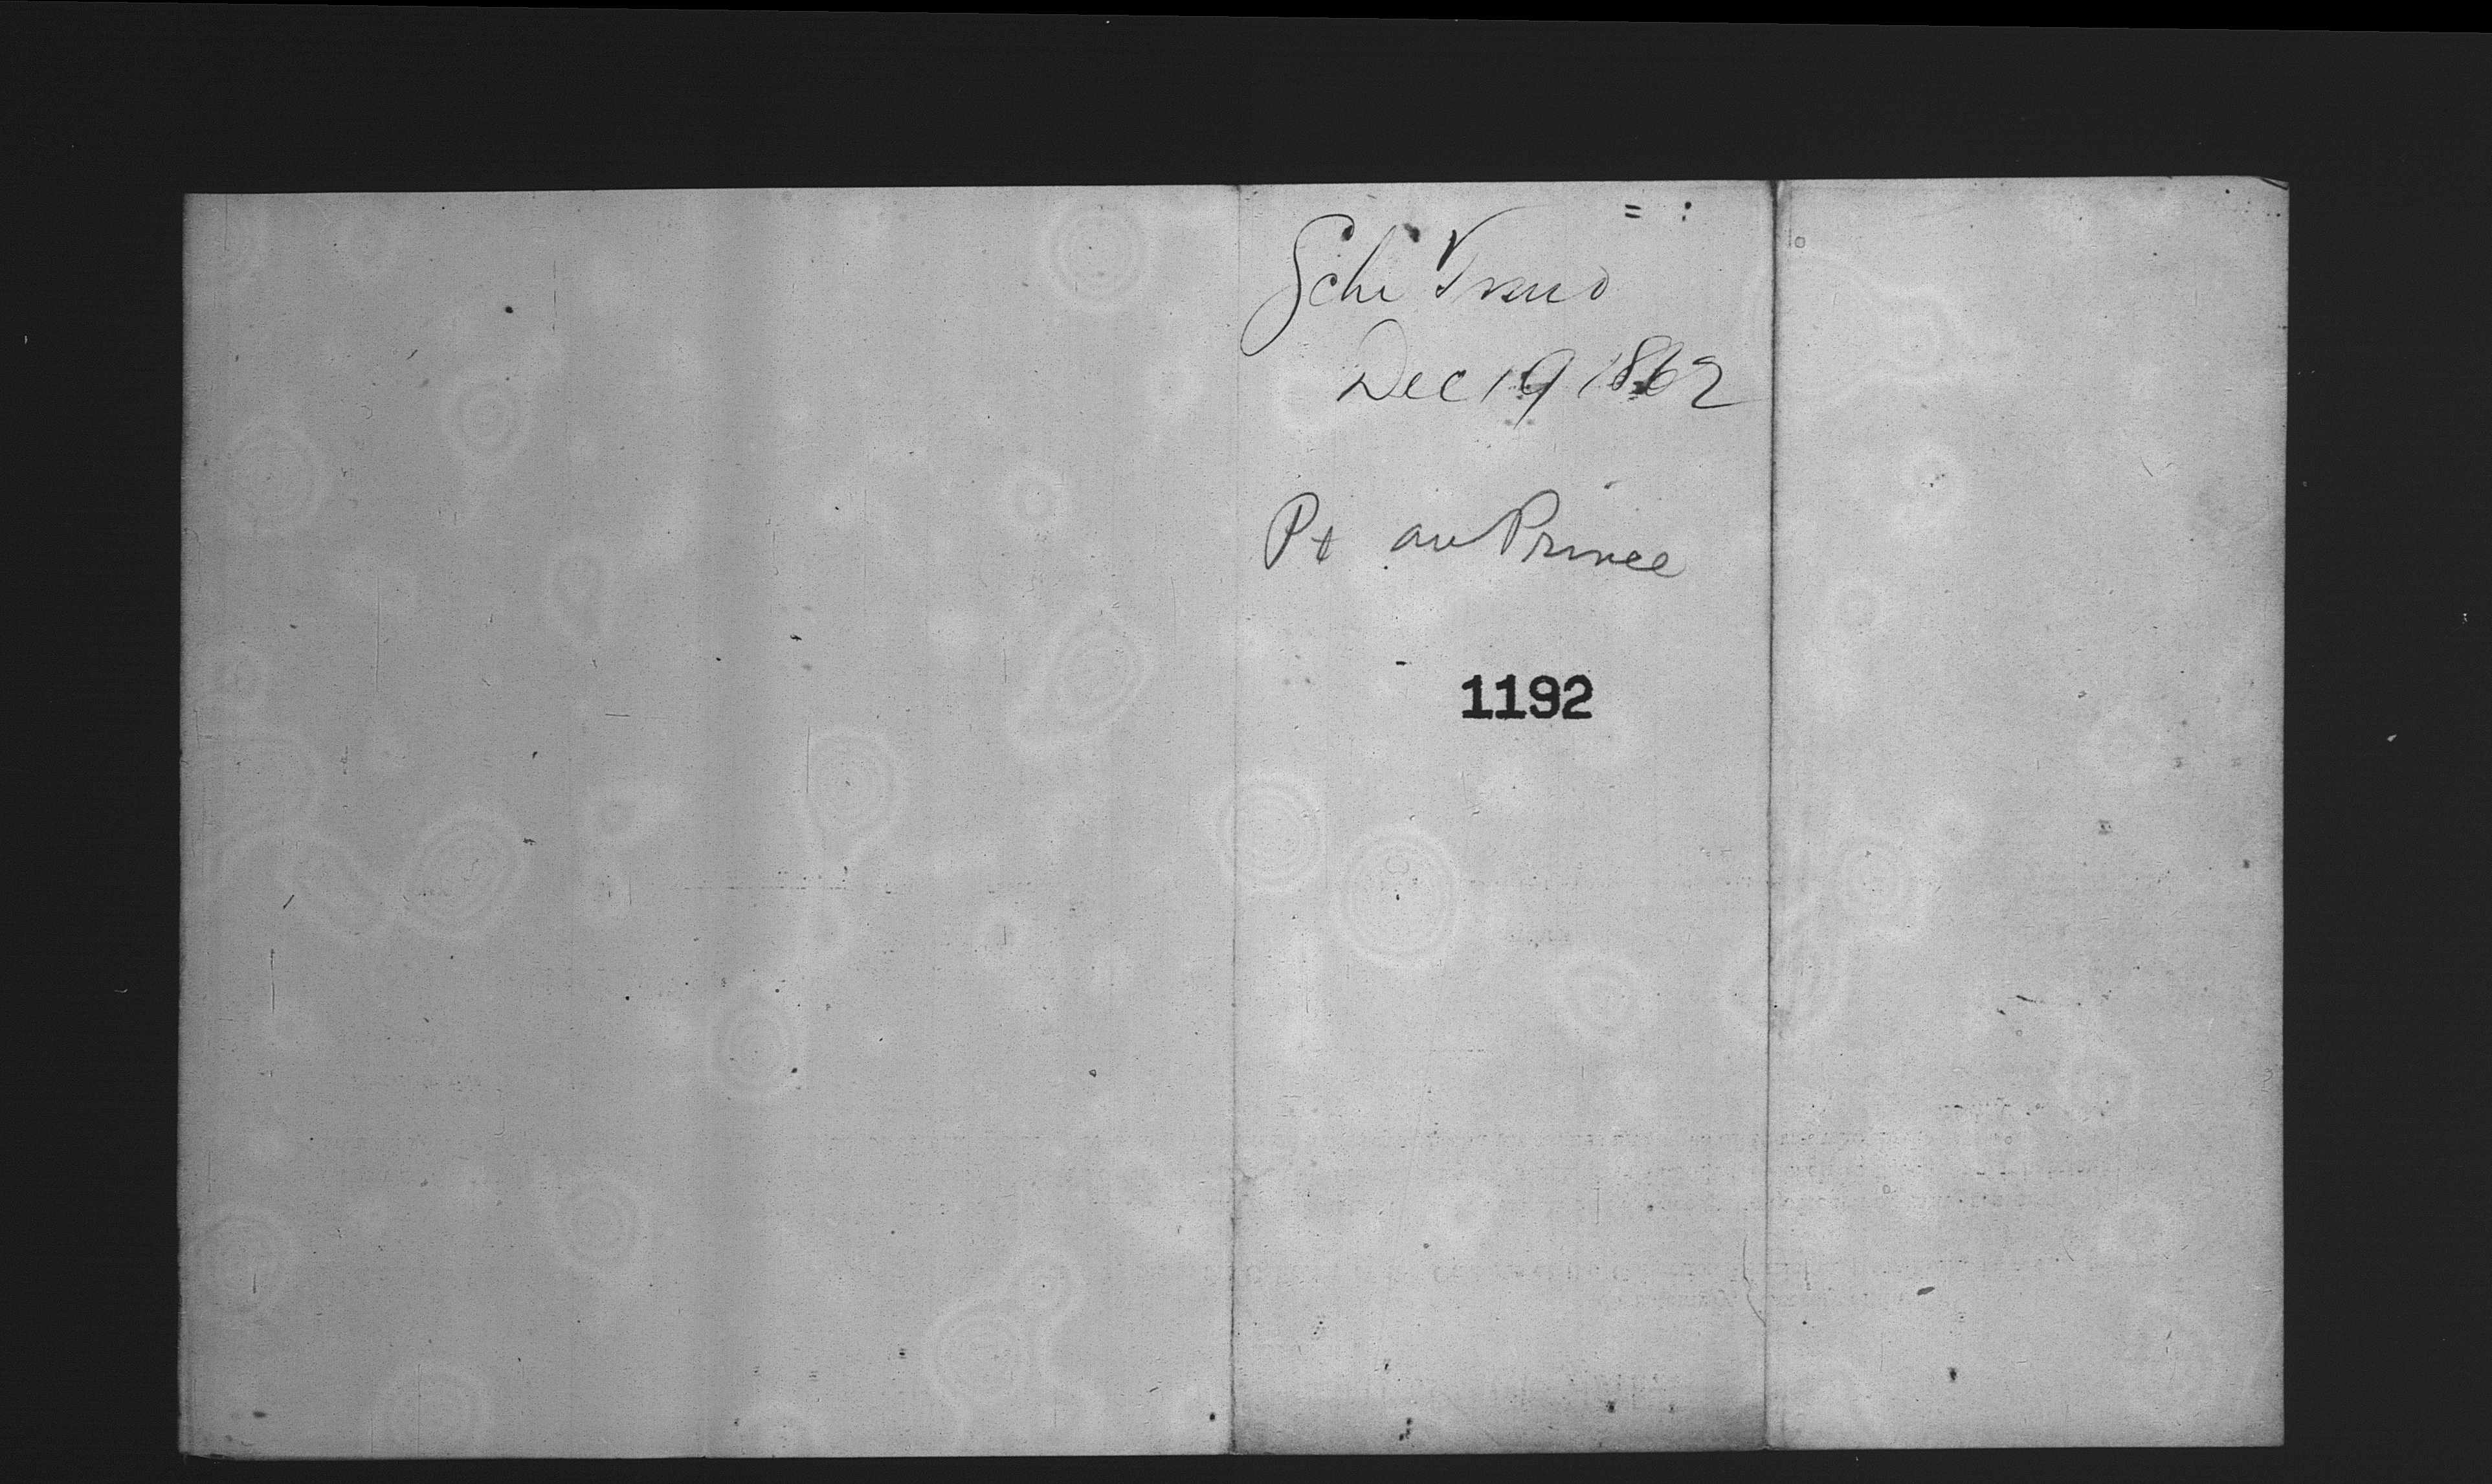 Schr Trend
Dec 19 1862
Pt au Prince
1192